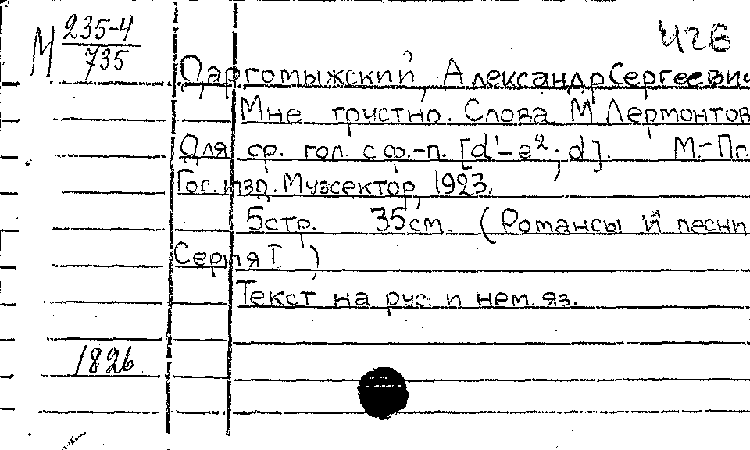 М 235-4
735
ЧГБ
Даргомыжский, Александр Сергеевич
Мне грустно. Слова М Лермонтов
Для ср. гол. с ф.-п. [d¹-g²; d]. М.-Пг.
Гос. изд. Музсектор, 1923.
5стр. 35см. (Романсы и песни
Серия I )
Текст на рус и нем. яз.
1826